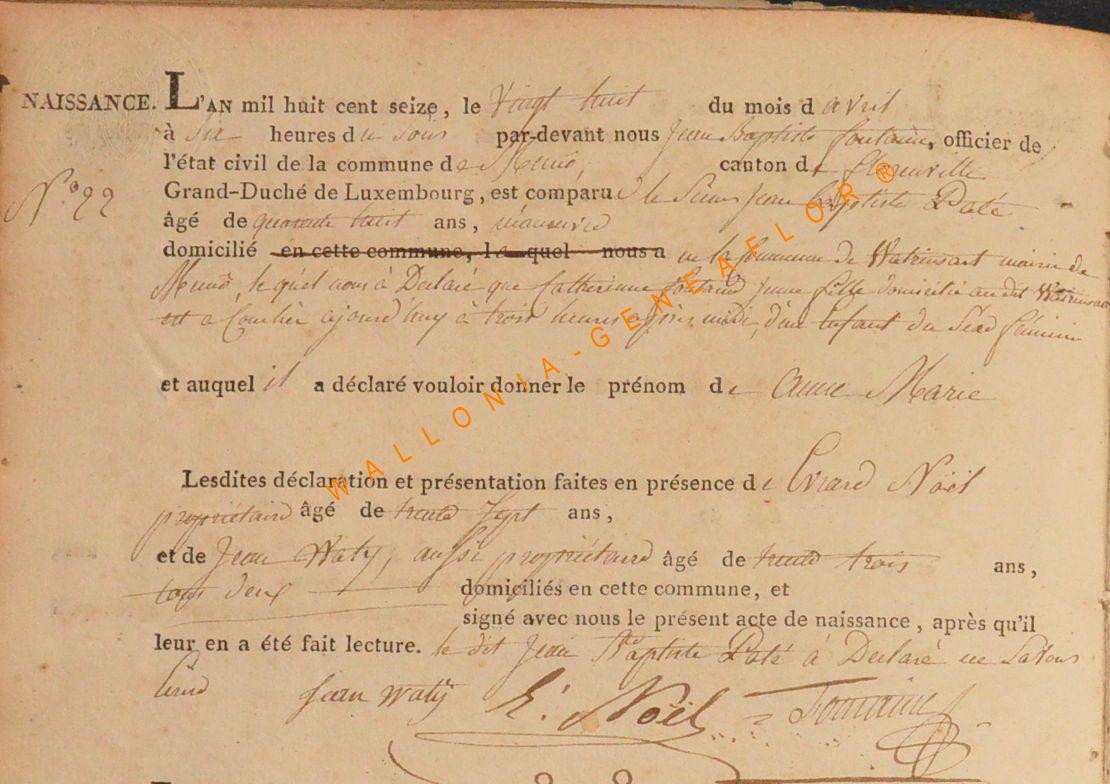 NAISSANCE. L'AN mil huit cent seize, le Vingt huit du mois d avril
à Six heures du soir par-devant nous Jean Baptiste fontaine, officier de
l'état civil de la commune de Muno, canton de florenville
N° 22 Grand-Duché de Luxembourg, est comparu le Sieur Jean Baptiste Paté
âgé de quarante huit ans, manouvrié
domicilié en cette commune, le quel nous a en la Commune de Watrinsart mairie de
Muno, le quel nous à Declaré que Catherinne jeune fille domicilié au dit Watrinsart
est a Coucher ajourd'huy à trois heures après midi, d'un Enfant du Séxe féminin
et auquel il a déclaré vouloir donner le prénom de anne Marie
Lesdites déclaration et présentation faites en présence de Evrard Noël
propriétaire âgé de trente Sept ans,
et de Jean Waty, aussi propriétaire âgé de trente trois ans,
tous deux domiciliés en cette commune, et
signé avec nous le présent acte de naissance, après qu'il
leur en a été fait lecture. le dit Jean Baptiste Paté à Declaré ne Savoir
jean waty E. Noël Fontaine
WALLONIA-GENEAFLOR®